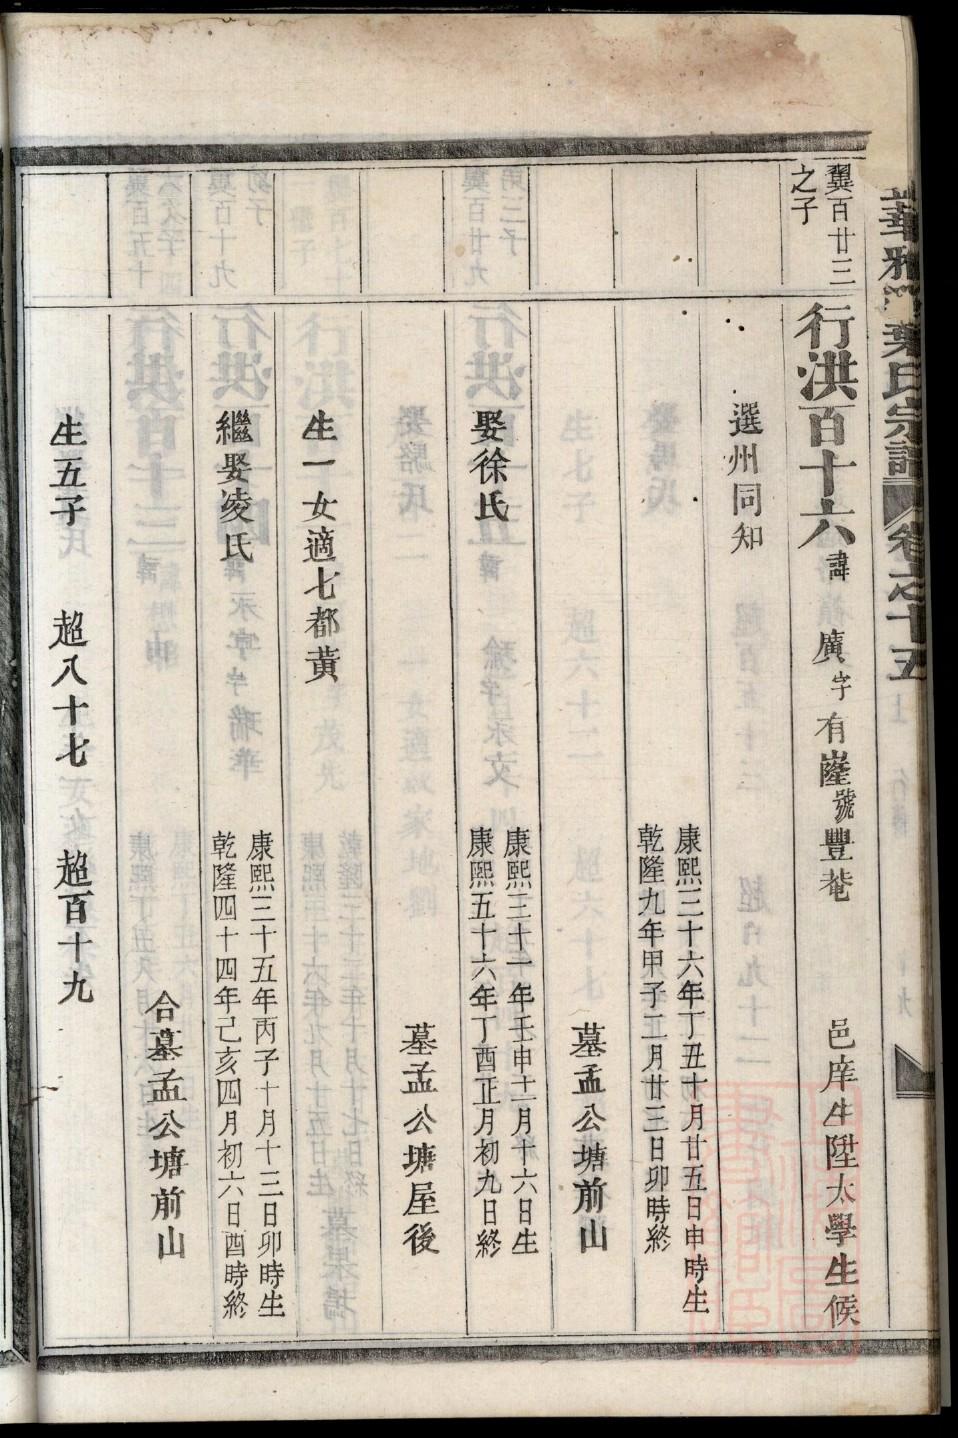 葉氏宗譜 卷之十五
翼百廿三
之子
行洪百十六 諱 廣 字 有嶐 號 豐菴 邑庠生陞太學生候
選州同知
康熙三十六年丁丑十月廿五日申時生
乾隆九年甲子二月廿三日卯時終
墓孟公塘前山
娶徐氏
康熙三十一年壬申十二月十六日生
康熙五十六年丁酉正月初九日終
墓孟公塘屋後
生一女適七都黃
繼娶凌氏
康熙三十五年丙子十月十三日卯時生
乾隆四十四年己亥四月初六日酉時終
合墓孟公塘前山
生五子 超八十七 超百十九